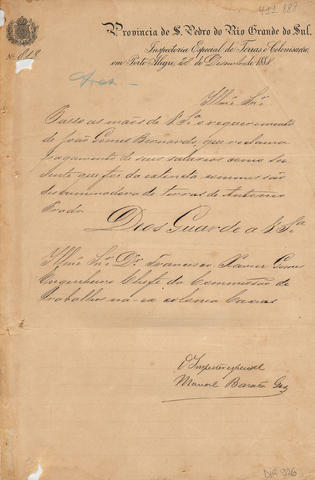 411 888
Provincia de S. Pedro do Rio Grande do Sul.
Inspectoria Especial de Terras e Colonisação,
em Porto Alegre, de Dezembro de 1888
Nº 818
Illmo Snr.
Passo as mãos de V. Sª o requerimento
de João Gomes Bernardo, que reclama
pagamento de seus salarios como
que fez da extincta commissão
discriminadora de terras de Antonio
Prado
Deos Guarde a V. Sª
Illmo Snr. Dr. Francisco Xavier Gomes
Engenheiro Chefe da Commissão de
Trabalhos na ex colonia Caxias
O Inspector especial
Manoel Barata Góes
DR 926